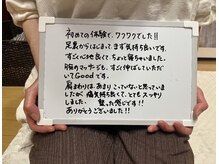 初めての体験で、ワクワクでした!!
足裏からはじまって、まず気持ち良いです。
すごく心地良くて、ちょっと寝ちゃいました。
腕のマッサージも、すごく伸ばしていただ
いてGoodです。
肩まわりは、あまりこっていないと思っていま
したが 痛気持ち良くて、とてもスッキリ
しました。 驚いた感じです!!
ありがとうございました!!